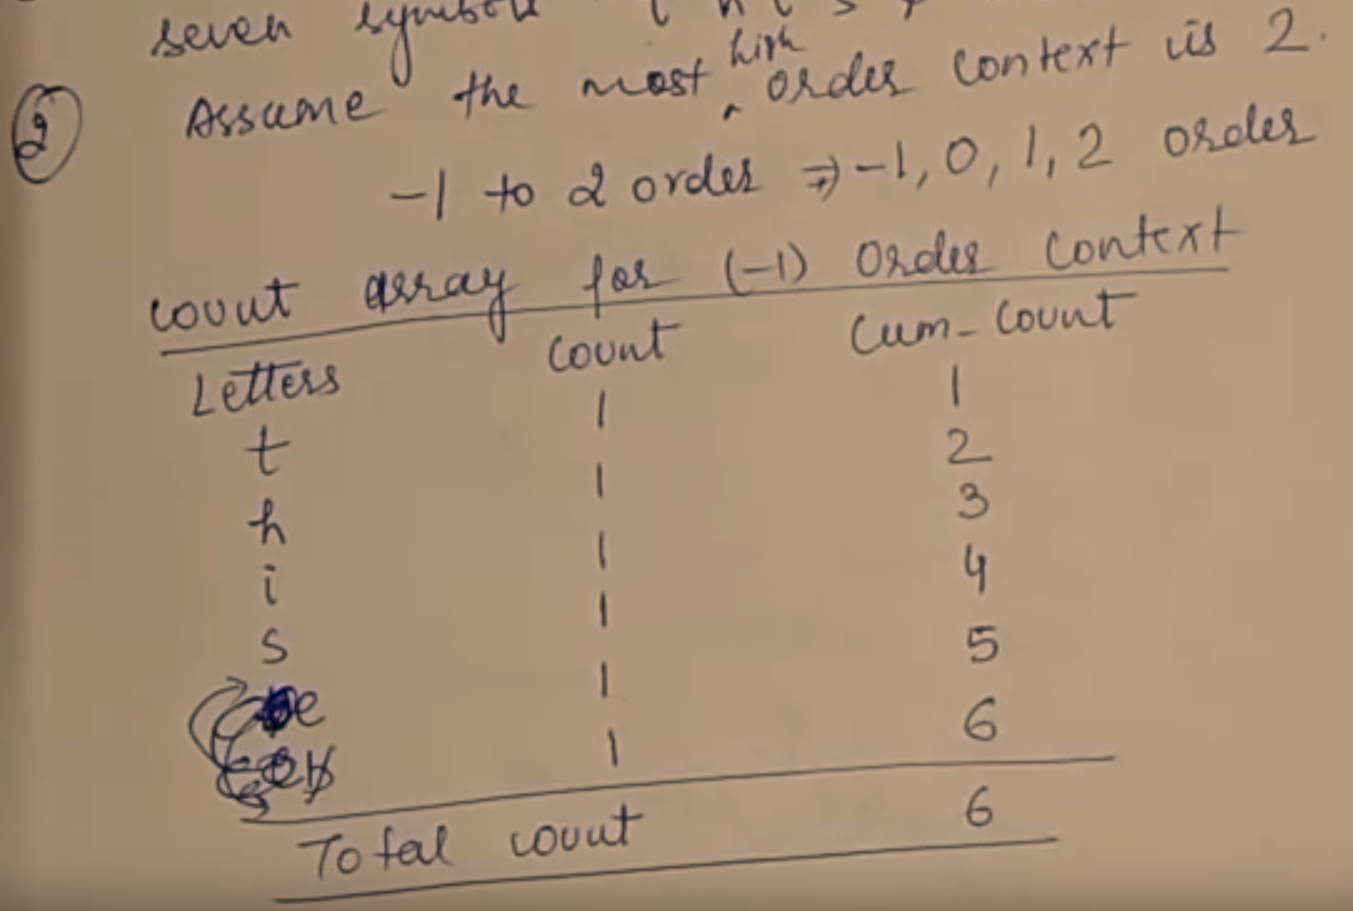 seven symbols t h i s
② Assume the most high order context is 2.
-1 to 2 order ⇒ -1, 0, 1, 2 order
count array for (-1) order context
Letters count Cum-Count
t 1 1
h 1 2
i 1 3
s 1 4
e 1 5
1 6
Total count 6